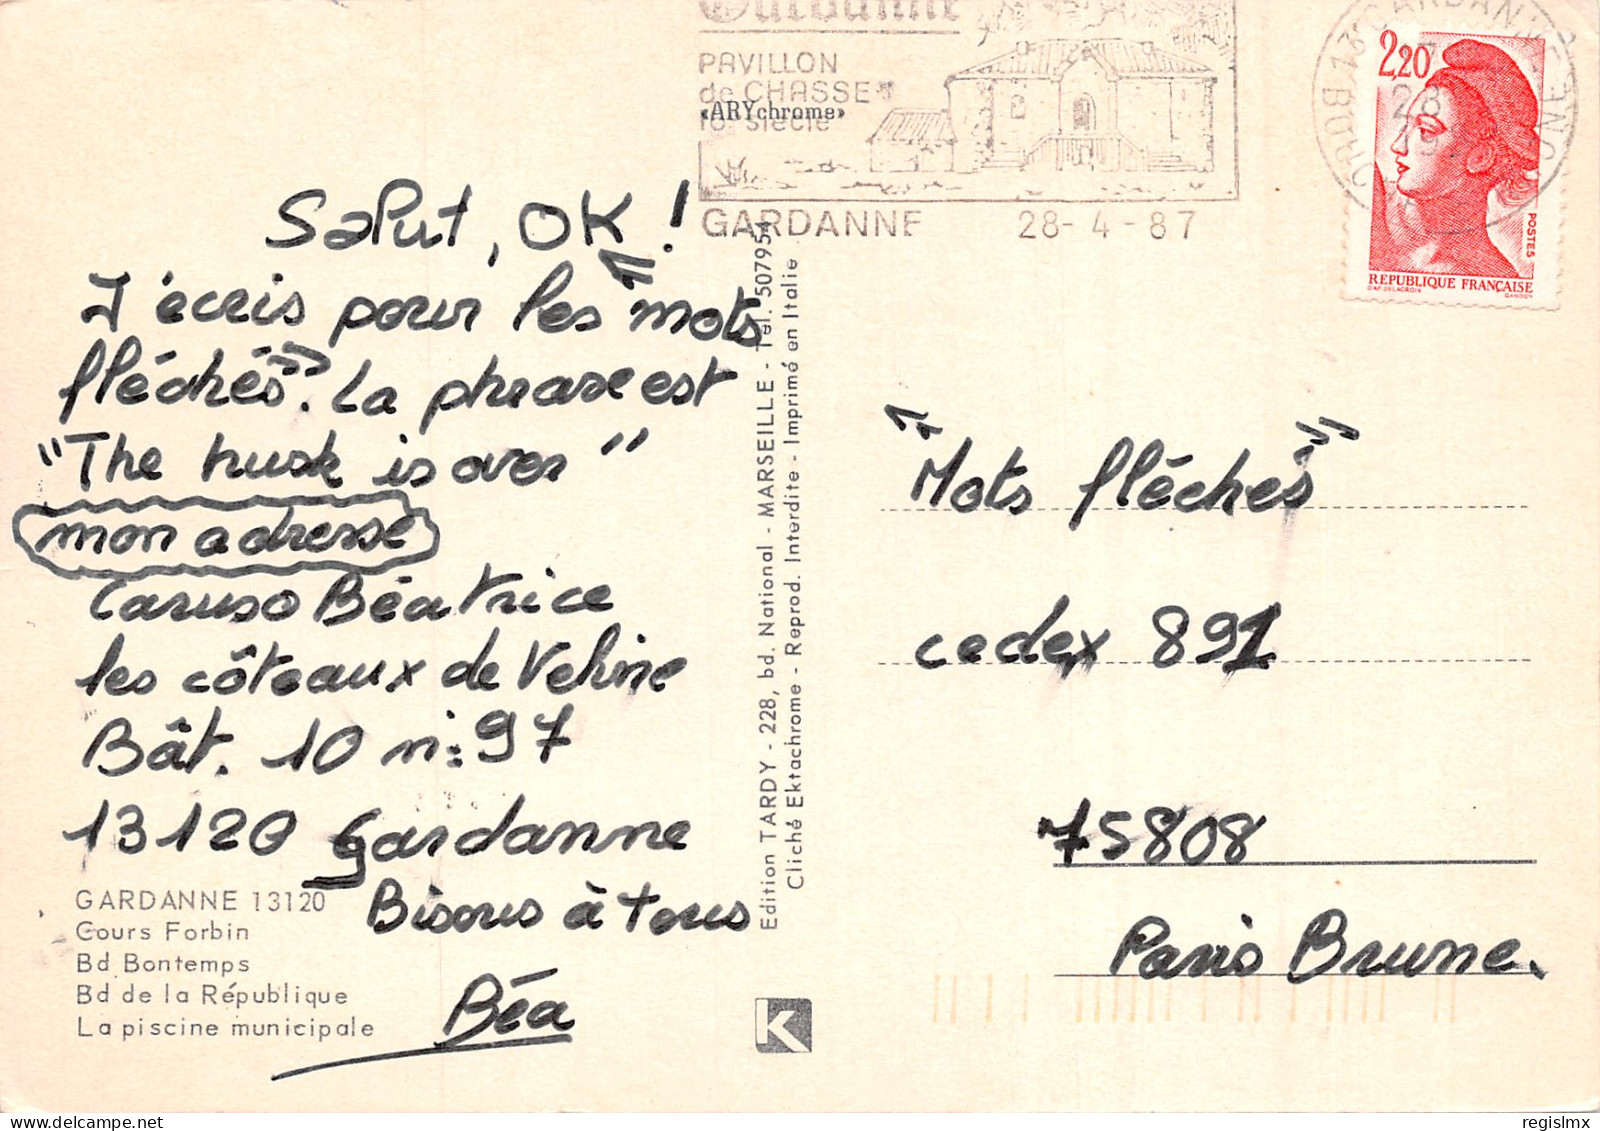 Gardanne
PAVILLON
de CHASSE
«ARYchrome»
18e siècle
GARDANNE 28-4-87
2,20
POSTES
REPUBLIQUE FRANÇAISE
D'AP. DELACROIX GANDON
Salut, OK !
J'écris pour les "mots
fléchés". La phrase est
"The husk is over"
mon adresse
Caruso Béatrice
les côteaux de Veline
Bât. 10 n: 97
13120 Gardanne
Bisous à tous
Béa
GARDANNE 13120
Cours Forbin
Bd Bontemps
Bd de la République
La piscine municipale
Edition TARDY - 228, bd. National - MARSEILLE - Tél. 507954
Cliché Ektachrome - Reprod. Interdite - Imprimé en Italie
K
"Mots fléchés"
cedex 891
75808
Paris Brune.
regislmx